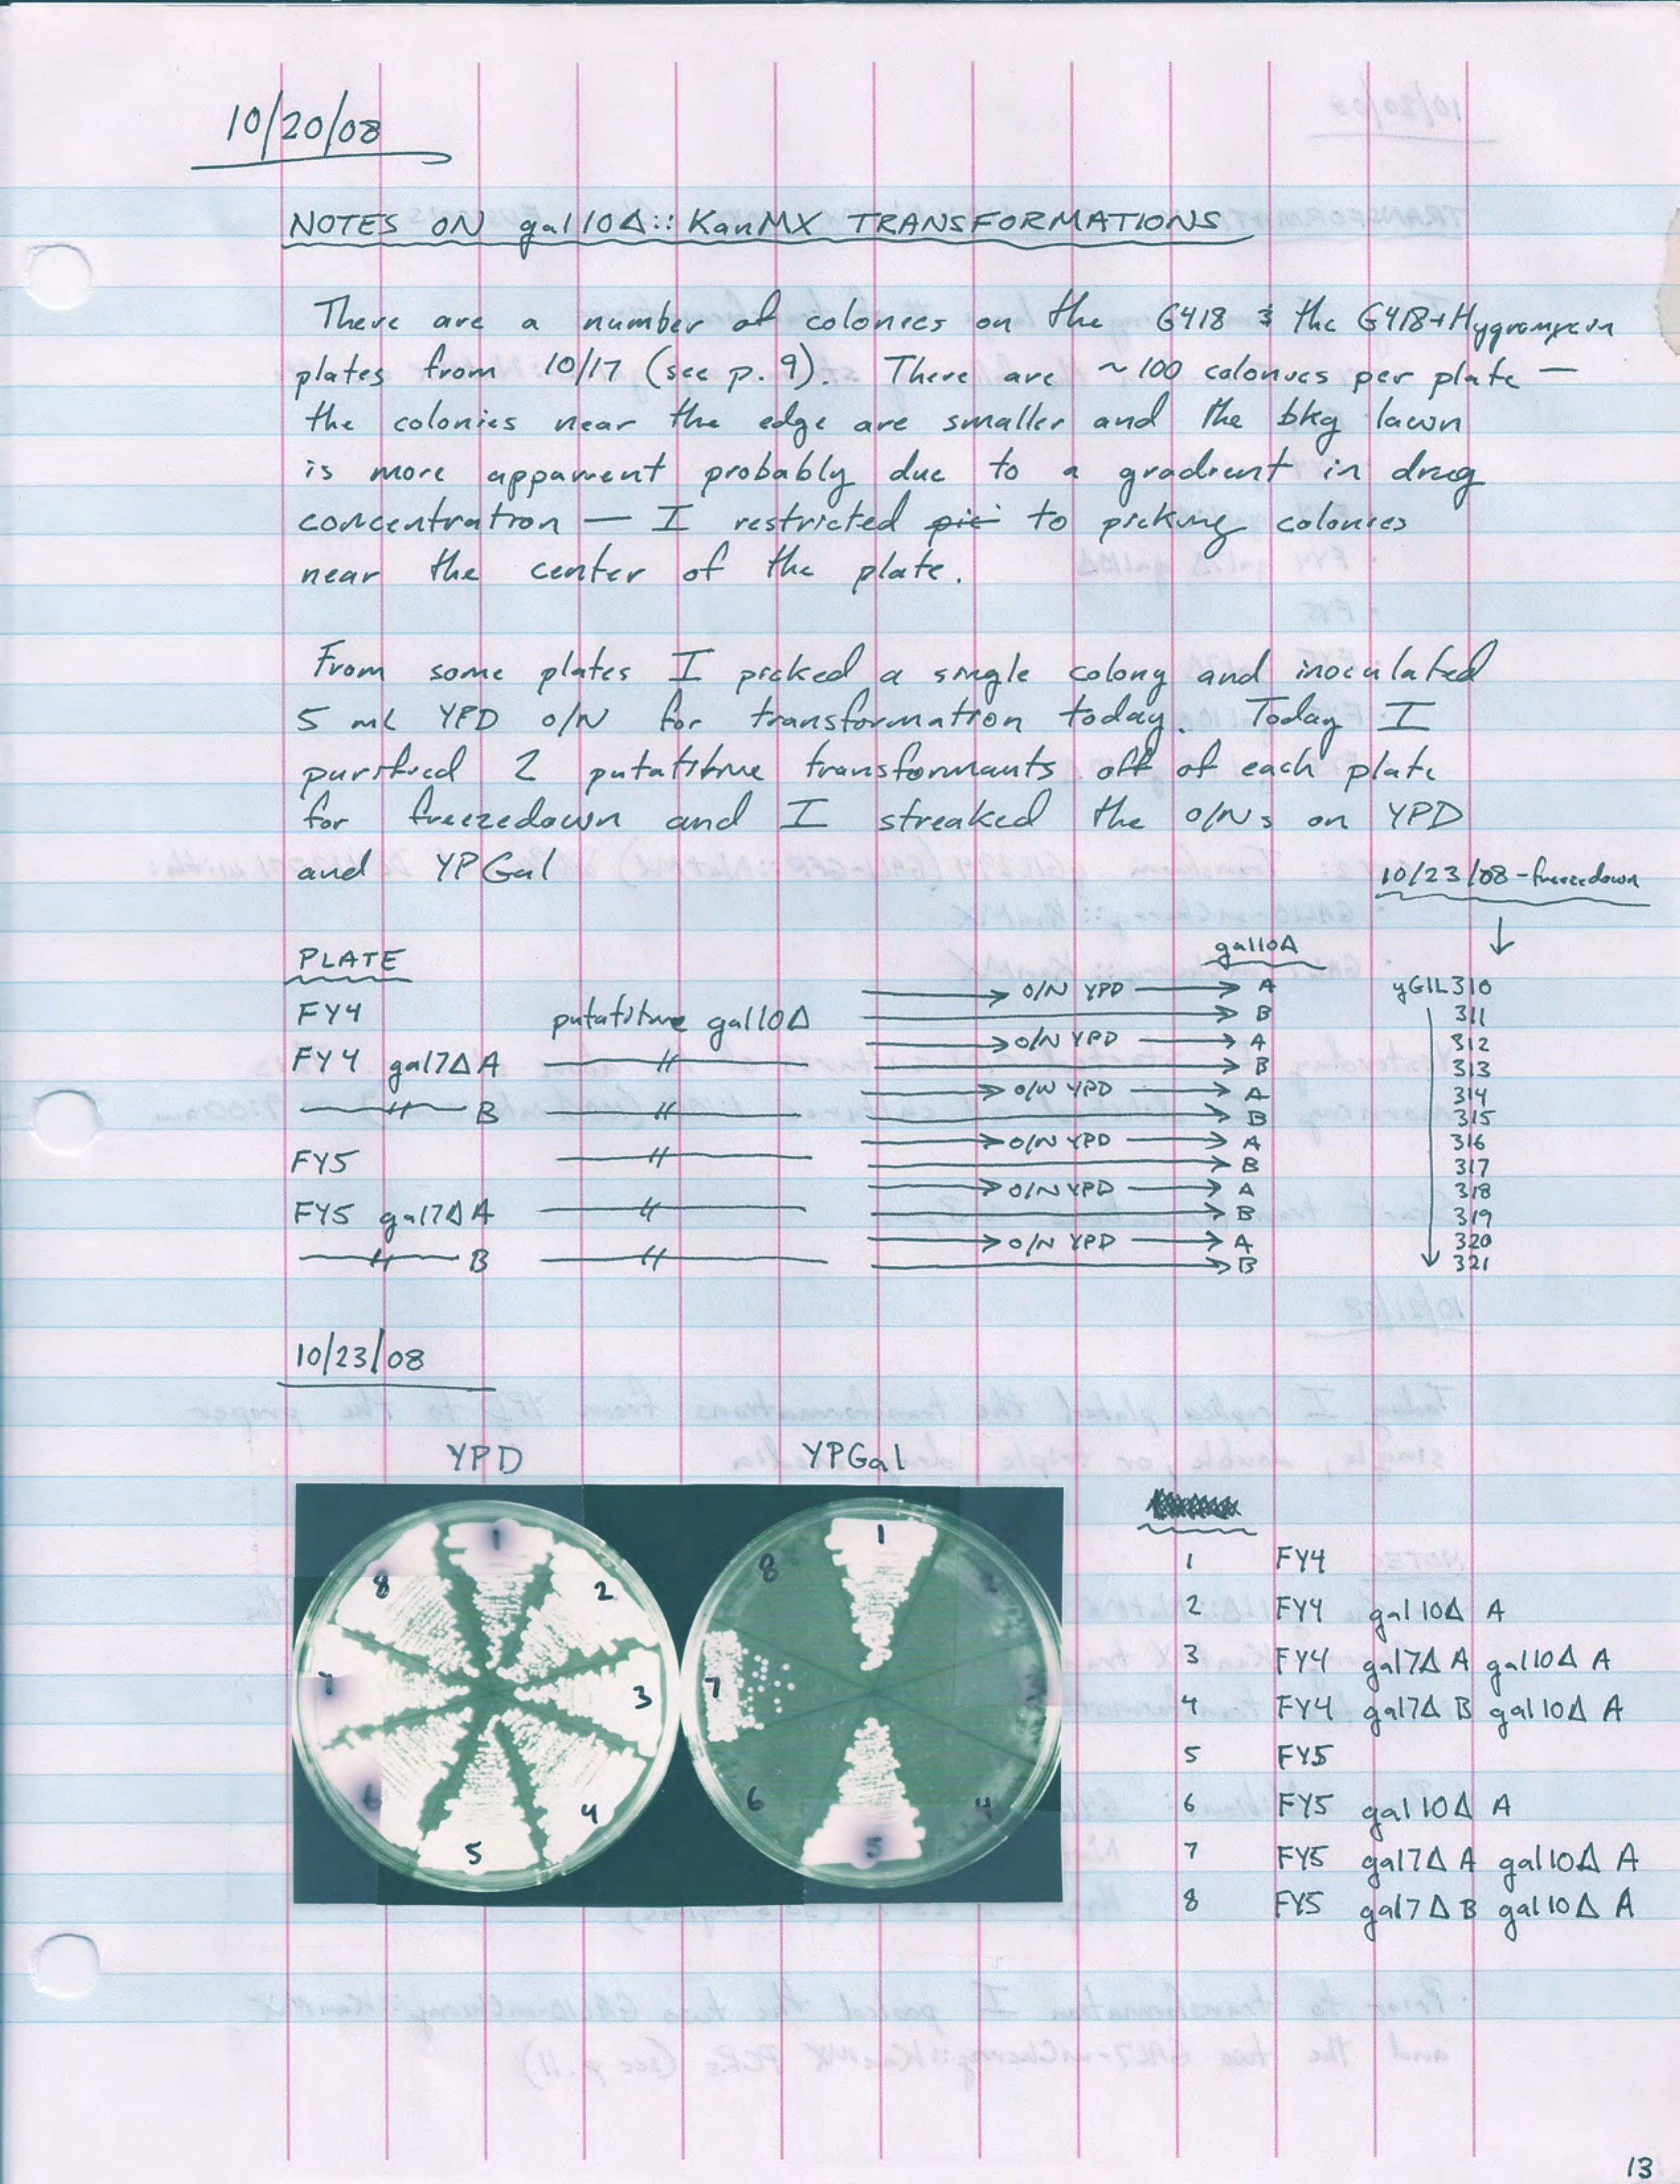 10/20/08
NOTES ON gal10Δ::KanMX TRANSFORMATIONS
There are a number of colonies on the G418 & the G418+Hygromycin
plates from 10/17 (see p. 9). There are ~100 colonies per plate —
the colonies near the edge are smaller and the bkg lawn
is more apparent probably due to a gradient in drug
concentration — I restricted pic to picking colonies
near the center of the plate.
From some plates I picked a single colony and inoculated
5 mL YPD O/N for transformation today. Today I
purified 2 putatitive transformants off of each plate
for freezedown and I streaked the O/Ns on YPD
and YPGal
10/23/08 - freezedown
PLATE gal10Δ
FY4 putatitive gal10Δ → O/N YPD → A yGIL310
→ B 311
FY4 gal7Δ A —〃— → O/N YPD → A 312
→ B 313
—〃— B —〃— → O/N YPD → A 314
→ B 315
FY5 —〃— → O/N YPD → A 316
→ B 317
FY5 gal7Δ A —〃— → O/N YPD → A 318
→ B 319
—〃— B —〃— → O/N YPD → A 320
→ B 321
10/23/08
YPD YPGal
1 2 3 4 5 6 7 8
1 2 3 4 5 6 7 8
1 FY4
2 FY4 gal10Δ A
3 FY4 gal7Δ A gal10Δ A
4 FY4 gal7Δ B gal10Δ A
5 FY5
6 FY5 gal10Δ A
7 FY5 gal7Δ A gal10Δ A
8 FY5 gal7Δ B gal10Δ A
13